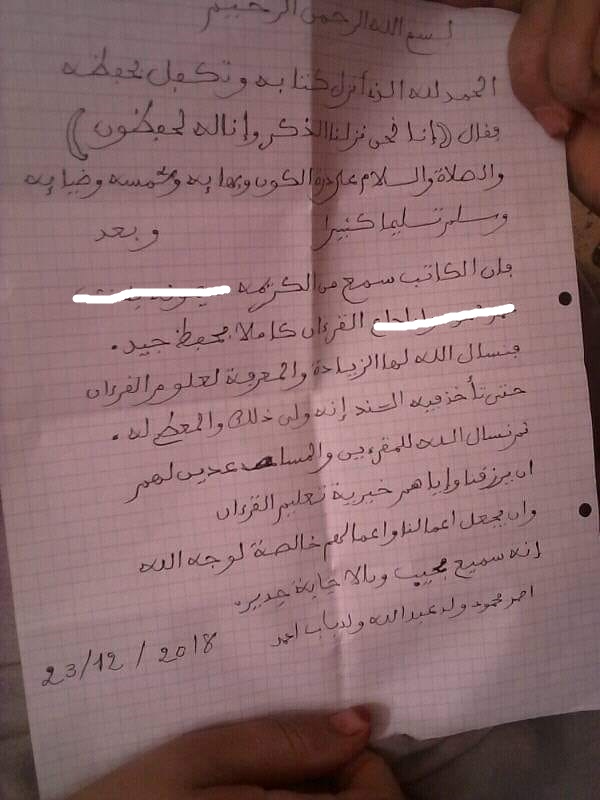 بسم الله الرحمن الرحيم
الحمد لله الذي أنزل كتابه وتكفل بحفظه
فقال ((إنا نحن نزلنا الذكر وإنا له لحفظون))
والصلاة والسلام على درة الكون وبهايه وشمسه وضيايه
وسلم تسليما كثيرا وبعد
فإن الكاتب سمع من الكريمه
القرءان كاملا بحفظ جيد.
فنسال الله لها الزيادة والمعرفة لعلوم القرءان
حتى تأخذ فيه السند إنه ولي ذلك والمعطي له.
ثم نسال الله للمقرءين والمساعدين لهم
ان يرزقنا وإياهم خيرية تعليم القرءان
وان يجعل اعمالنا واعمالهم خالصة لوجه الله
إنه سميع مجيب وبالاجابة جدير.
احمد محمود ولد عبد الله ولد باب احمد
23/12/2018